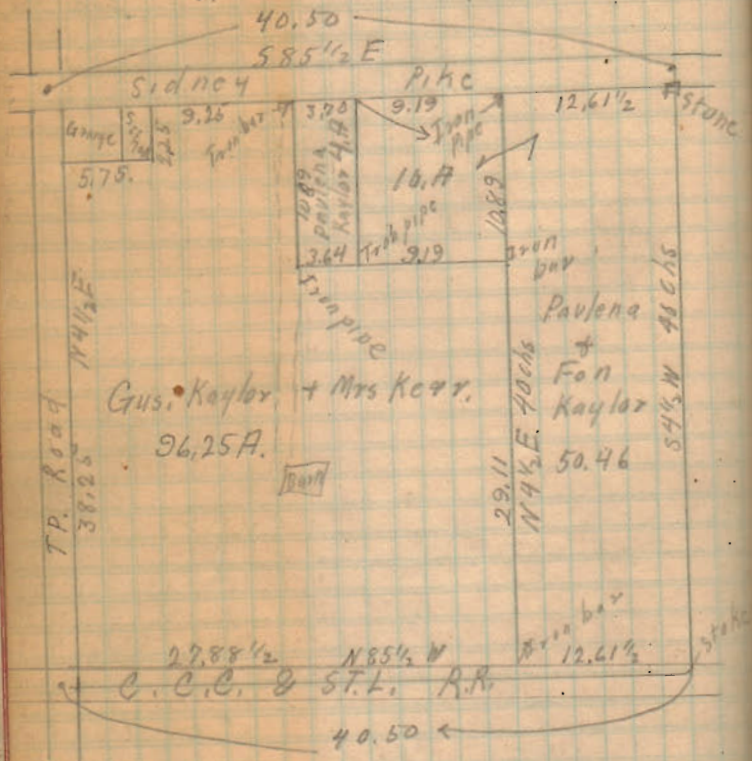 40.50
S85 1/2 E
Sidney Pike
9,25 3,70 9.19 12,61 1/2
Stone
Grange
2,25
5,75.
Iron bar
10,89
Pavlena
Kaylor 4,A
Iron
pipe
16,A
10,89
3.64
Iron pipe
9.19
Iron
bar
Iron pipe
TP. Road
N4 1/2 E
38,25
Gus. Kaylor + Mrs Kerr.
96,25A.
Barn
29.11
N4 1/2 E 40chs
Pavlena
+
Fon
Kaylor
50.46
S4 1/2 W 40chs
27.88 1/2 N85 1/2 W
Iron bar
12,61 1/2
Stake
C. C.C. & ST.L. R.R.
40.50